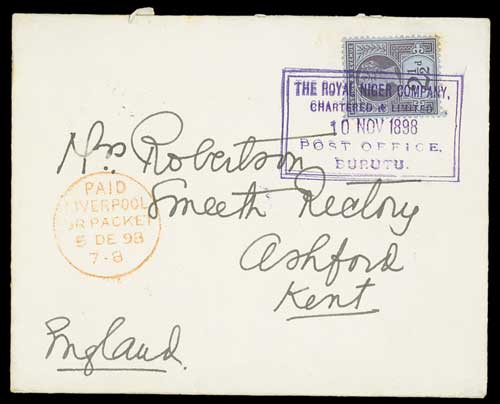 2½d
THE ROYAL NIGER COMPANY,
CHARTERED & LIMITED
10 NOV 1898
POST OFFICE,
BURUTU.
Mrs Robertson
Smeeth Rectory
Ashford
Kent
England.
PAID
LIVERPOOL
BR PACKET
5 DE 98
7-8